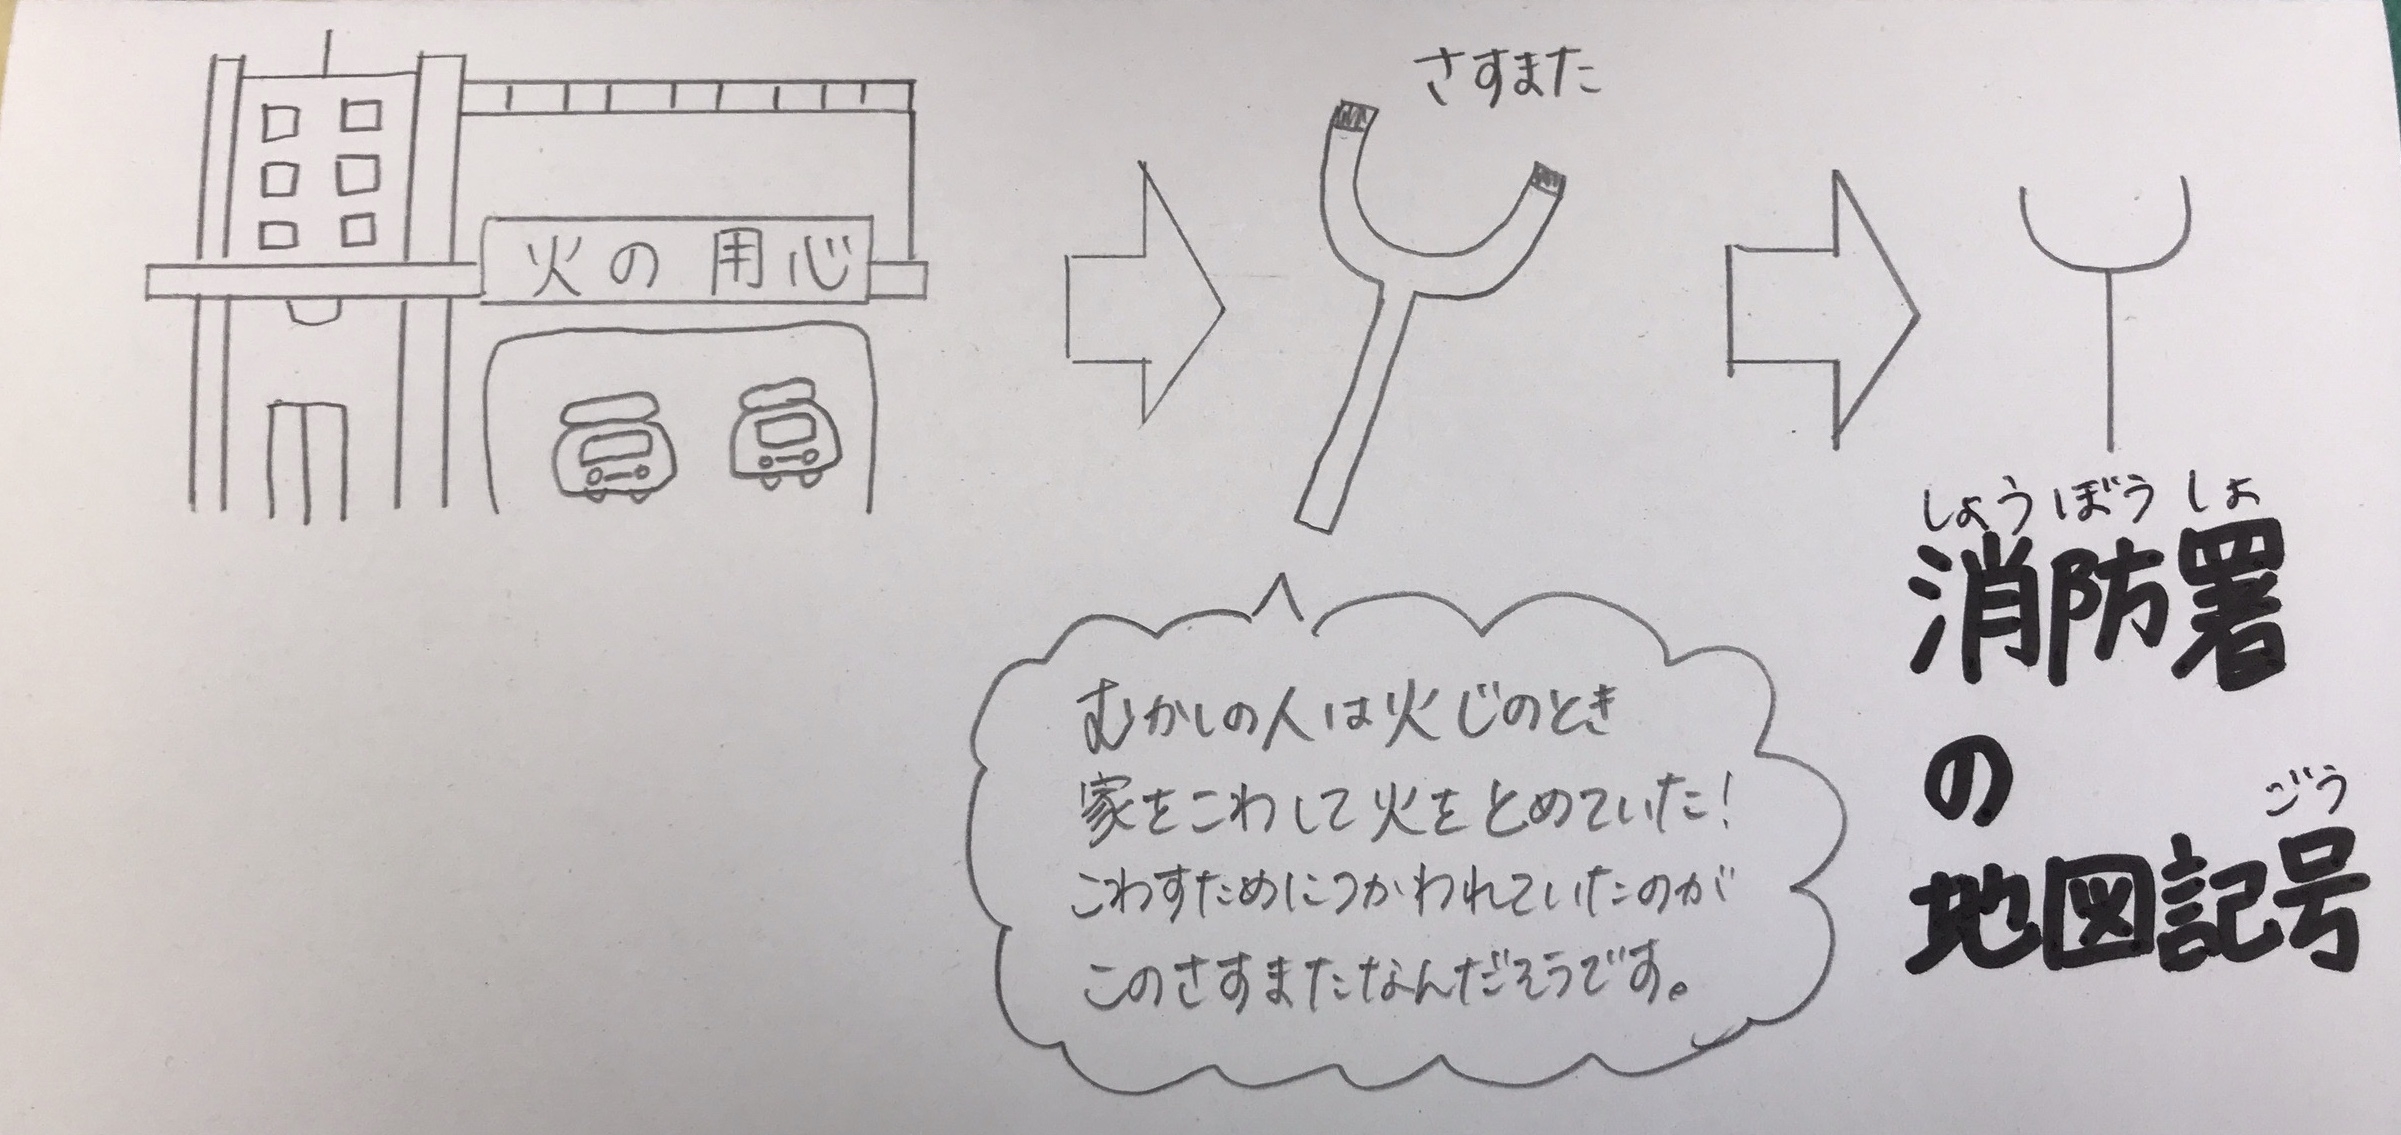 さすまた
火の用心
しょうぼうしょ
消防署
の
ごう
地図記号
むかしの人は火じのとき
家をこわして火をとめていた!
こわすためにつかわれていたのが
このさすまたなんだそうです。